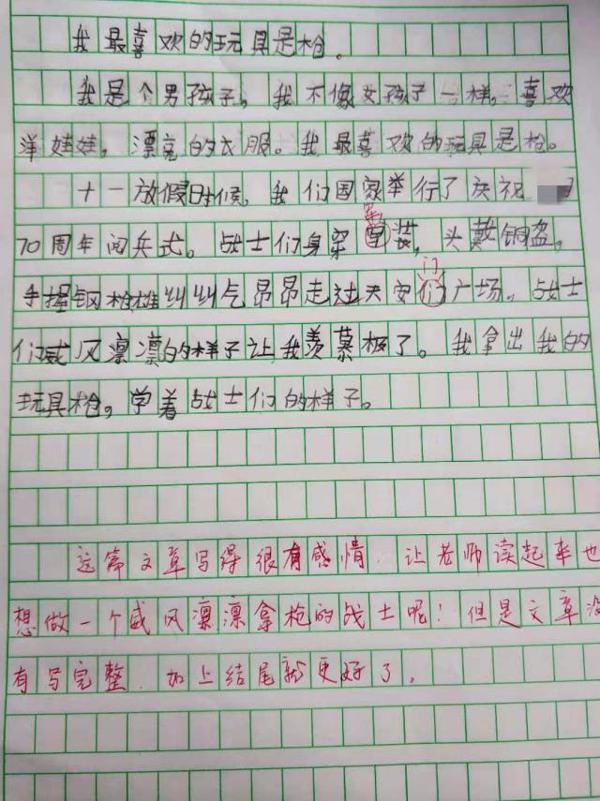 我最喜欢的玩具是枪。
我是个男孩子，我不像女孩子一样，喜欢
洋娃娃，漂亮的衣服。我最喜欢的玩具是枪。
十一放假时候，我们国家举行了庆祝
70周年阅兵式。战士们身穿军装，头戴钢盔。
手握钢枪雄纠纠气昂昂走过天安们广场。战士
门
们威风凛凛的样子让我羡慕极了。我拿出我的
玩具枪，学着战士们的样子。
这篇文章写得很有感情，让老师读起来也
想做一个威风凛凛拿枪的战士呢！但是文章没
有写完整，加上结尾就更好了。